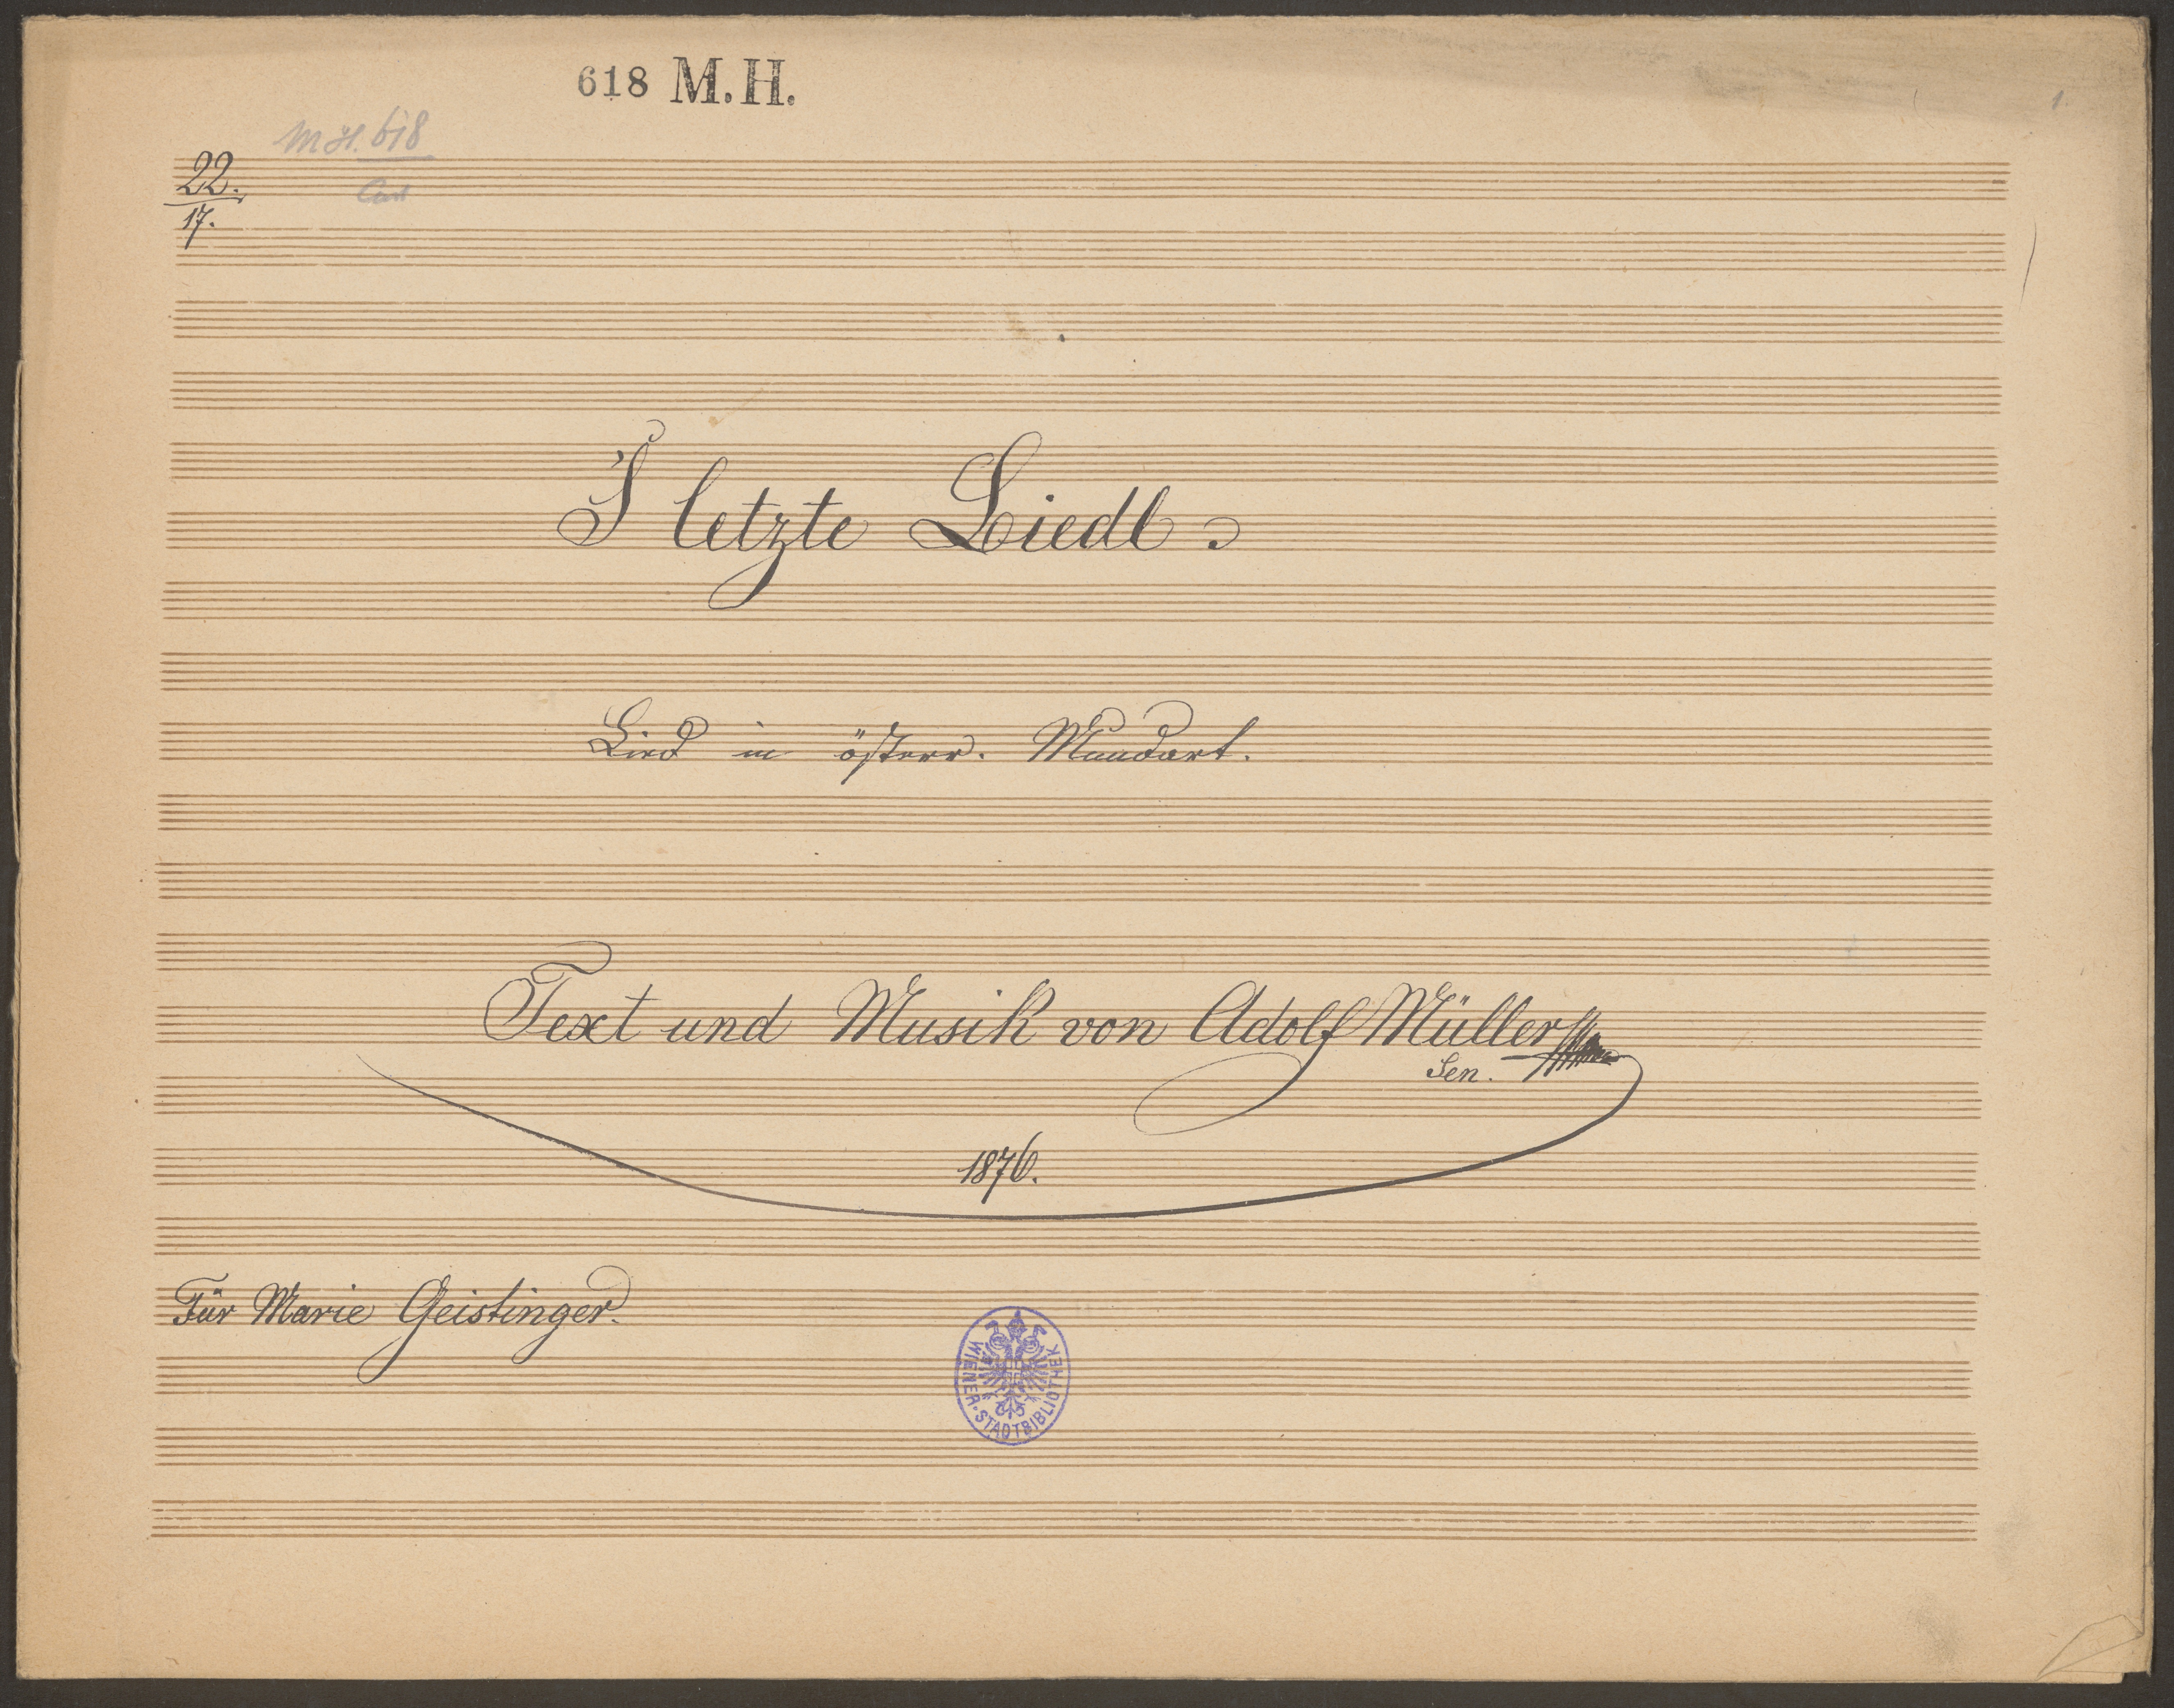 618 M.H.
MH. 618
1.
22.
17.
'S letzte Liedl.
Lied in österr. Mundart.
Text und Musik von Adolf Müller
Sen.
1876.
Für Marie Geistinger.
WIENER·STADTBIBLIOTHEK